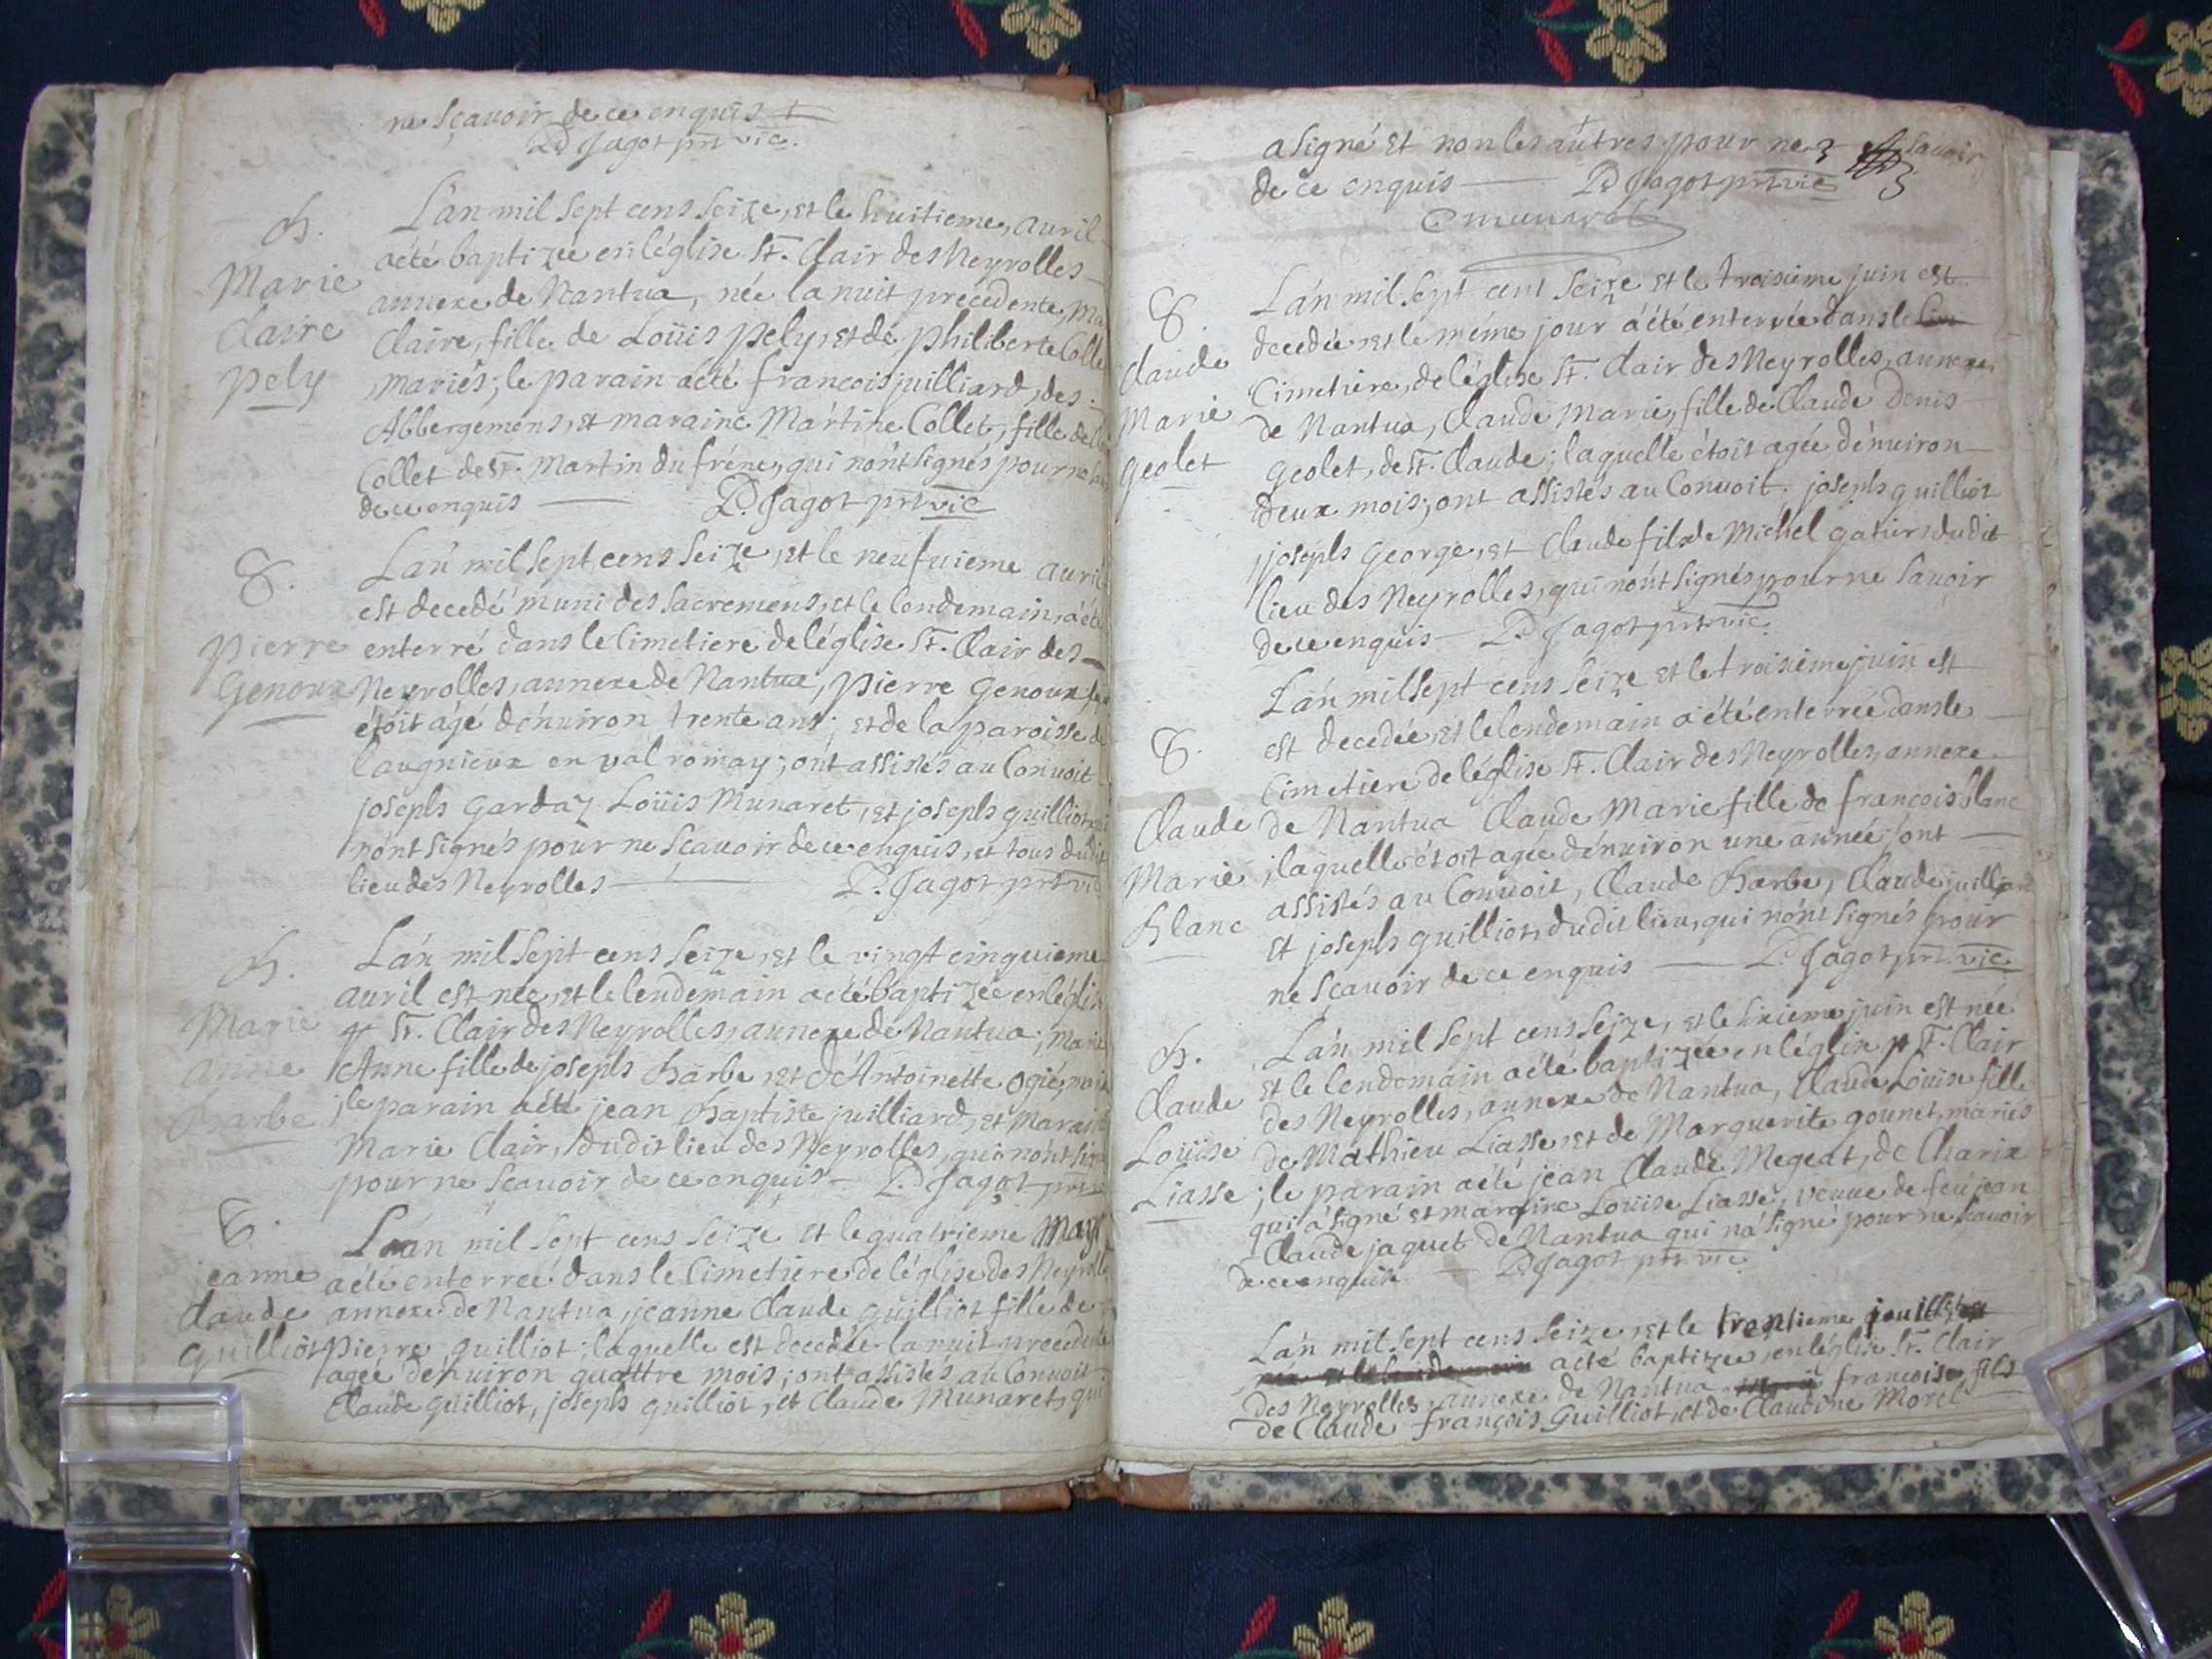 ne sçauoir de ce enquis
P. Jagot prt vic.
B.
Marie
Claire
pely
L'an mil sept cens seize, et le huitieme, auril
a été baptizée en l'église St. Clair des Neyrolles
annexe de Nantua, née la nuit precedente, Ma
Claire, fille de Loüis pely, et de philiberte Colle
mariés; le parain a été francois juilliard, des
Abbergemens, et maraine Martine Collet, fille de
Collet de St. Martin du fréne, qui n'ont signés pour ne
de ce enquis P. Jagot prt vic
S.
Pierre
Genoux
L'an mil sept cens seize, et le neufuieme auril
est decedé muni des sacremens, et le lendemain, a été
enterré dans le Cimetiere de l'église St. Clair des
Neyrolles, annexe de Nantua, pierre Genoux
étoit agé d'enuiron trente ans; et de la paroisse de
laugnieux en val romay; ont assistés au Conuoit
joseph Gardaz Loüis Munaret, et joseph guilliot
n'ont signés pour ne scauoir de ce enquis, et tous dudit
lieu des Neyrolles P. Jagot prt vic
B.
Marie
Anne
barbe
L'an mil sept cens seize, et le vingt cinquieme
auril est née, et le lendemain a été baptizée en l'église
St. Clair des Neyrolles, annexe de Nantua, Marie
Anne fille de joseph barbe, et d'Antoinette ogié, mari
; le parain a été jean baptiste juilliard, et Maraine
Marie Clair, dudit lieu des Neyrolles, qui n'ont sign
pour ne scauoir de ce enquis P. Jagot prt
S.
jeanne
Claude
guilliot
L'an mil sept cens seize et le quatrieme May
a été enterrée dans le Cimetiere de l'église des Neyrolle
annexe de Nantua, jeanne Claude guilliot fille de
Pierre guilliot; laquelle est decedée la nuit precedente
agée d'enuiron quattre mois; ont assistés au Conuoit
Claude guilliot, joseph guilliot, et Claude Munaret, qui
a signé et non les autres pour ne sauoir
de ce enquis P. Jagot prt vic
C munaret
S.
Claude
Marie
geolet
L'an mil sept cent seize et le troisieme juin est
decedée et le méme jour a été enterrée dans le
Cimetiere, de l'église St. Clair des Neyrolles, annexe
de Nantua, Claude Marie, fille de Claude Denis
Geolet, de St. Claude; laquelle étoit agée d'enuiron
deux mois; ont assistés au Conuoit. joseph guilliot
, joseph george, et Claude fils de Michel dudit
lieu des Neyrolles, qui n'ont signés pour ne sauoir
de ce enquis P. Jagot prt vic
S.
Claude
Marie
blanc
L'an mil sept cens seize et le troisieme juin est
est decedée et le lendemain a été enterrée dans le
Cimetiere de l'église St. Clair des Neyrolles, annexe
de Nantua Claude Marie fille de francois blanc
; laquelle étoit agée d'enuiron une année; ont
assistés au Conuoit, Claude barbe, Claude juilliard
et joseph guilliot, dudit lieu, qui n'ont signés pour
ne scauoir de ce enquis P. Jagot prt. vic
B.
Claude
Loüise
Liasse
L'an mil sept cens seize, et le sixieme juin est née
et le lendemain a été baptizée en l'église St. Clair
des Neyrolles, annexe de Nantua, Claude Loüise fille
de Mathieu Liasse et de Marguerite gounet, mariés
; le parain a été jean Claude Megeat, de Charix
qui a signé et maraine Loüise Liasse, veuue de feu jean
Claude jaquet de Nantua qui n'a signé pour ne scauoir
de ce enquis P. Jagot prt vic
L'an mil sept cens seize, et le trentieme jouillet
a été baptizee, en l'église St. Clair
des Neyrolles, annexe de Nantua francoise fils
de Claude françois Guilliot, et de Claudine Morel